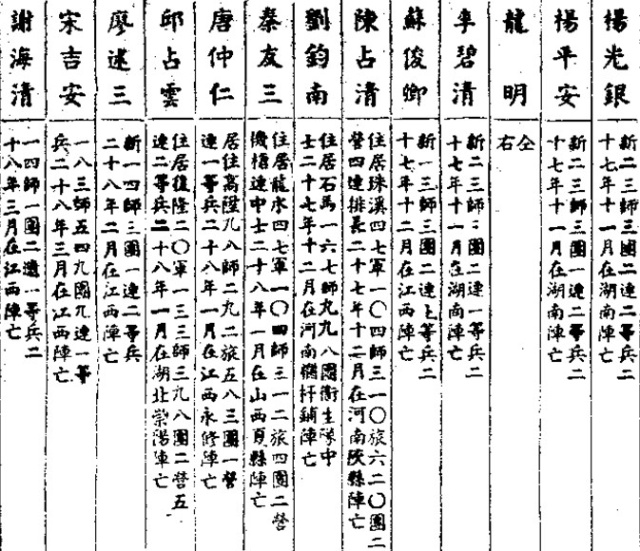 楊光銀
新二三師三團二連一等兵二
十七年十一月在湖南陣亡
楊平安
新二三師三團一連二等兵二
十七年十一月在湖南陣亡
龍明
仝
右
李碧清
新二三師三團二連一等兵二
十七年十一月在湖南陣亡
蘇俊卿
新一三師三團二連上等兵二
十七年十二月在江西陣亡
陳占清
住居珠溪四七軍一〇四師三一〇旅六二〇團二
營四連排長二十七年十二月在河南陝縣陣亡
劉鈞南
住居石馬一六七師九九八團衛生隊中
士二十七年十二月在河南 鋪陣亡
秦友三
住居龍水四七軍一〇四師三一二旅四團二營
機槍連中士二十八年一月在山西夏縣陣亡
唐仲仁
居住高陞九八師二九二旅五八三團一營
連一等兵二十八年一月在江西永修陣亡
邱占雲
住居復隆二〇軍一三三師三九八團二營五
連二等兵二十八年一月在湖北崇陽陣亡
廖述三
新一四師三團一連二等兵
二十八年二月在江西陣亡
宋吉安
一八三師五四九團九連一等
兵二十八年三月在江西陣亡
謝海清
一四師一團二連一等兵二
十八年三月在江西陣亡